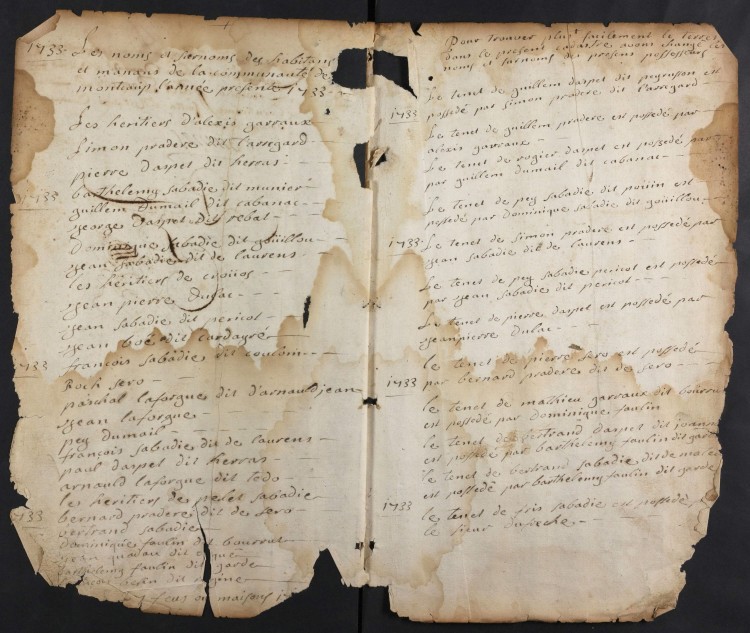 1733
Les noms et surnoms des habitans
et manans de la communauté de
montaup l'année presente 1733
Les heritiers d'alexis garraux
Simon pradere dit larregard
pierre daspet dit herras
barthelemy sabadie dit munier
1733
guillem Dumail dit cabanac
george Daspet dit rebat
Dominique sabadie dit gouillou
jean sabadie dit de laurens
les heritiers de
jean pierre Dulac
jean sabadie dit pericot
jean boé dit
françois sabadie dit
1733
Roch sero
paschal laforgue dit d'arnauldjean
jean laforgue
pey dumail
françois sabadie dit de laurens
paul daspet dit herras
arnauld laforgue dit todo
les heritiers de pelet sabadie
1733
bernard pradere dit de sero
bertrand sabadie
Dominique faulin dit bourrut
jean dit
barthelemy faulin dit garde
dit
feus ou maisons
Pour trouver plus facilement le terrei
dans le present cadastre avons changé les
noms et surnoms des presens possesseurs
Le tenet de guillem daspet dit est
possedé par simon pradere dit l'arregard
1733
Le tenet de guillem pradere est possedé par
alexis garraux
Le tenet de rogier daspet est possedé par
par guillem dumail dit cabanac
Le tenet de pey sabadie dit est
possedé par dominique sabadie dit gouillou
1733
Le tenet de simon pradere est possedé par
jean sabadie dit de laurens
Le tenet de pey sabadie pericot est possedé
par jean sabadie dit pericot
Le tenet de pierre daspet est possedé par
jeanpierre Dulac
le tenet de pierre sero est possedé
par bernard pradere dit de sero
1733
le tenet de mathieu garraux dit bourrut
est possedé par dominique faulin
le tenet de bertrand daspet dit
est possedé par barthelemy faulin dit garde
le tenet de bertrand sabadie dit de
est possedé par barthelemy faulin dit garde
1733
le tenet de fris sabadie est possedé
le sieur